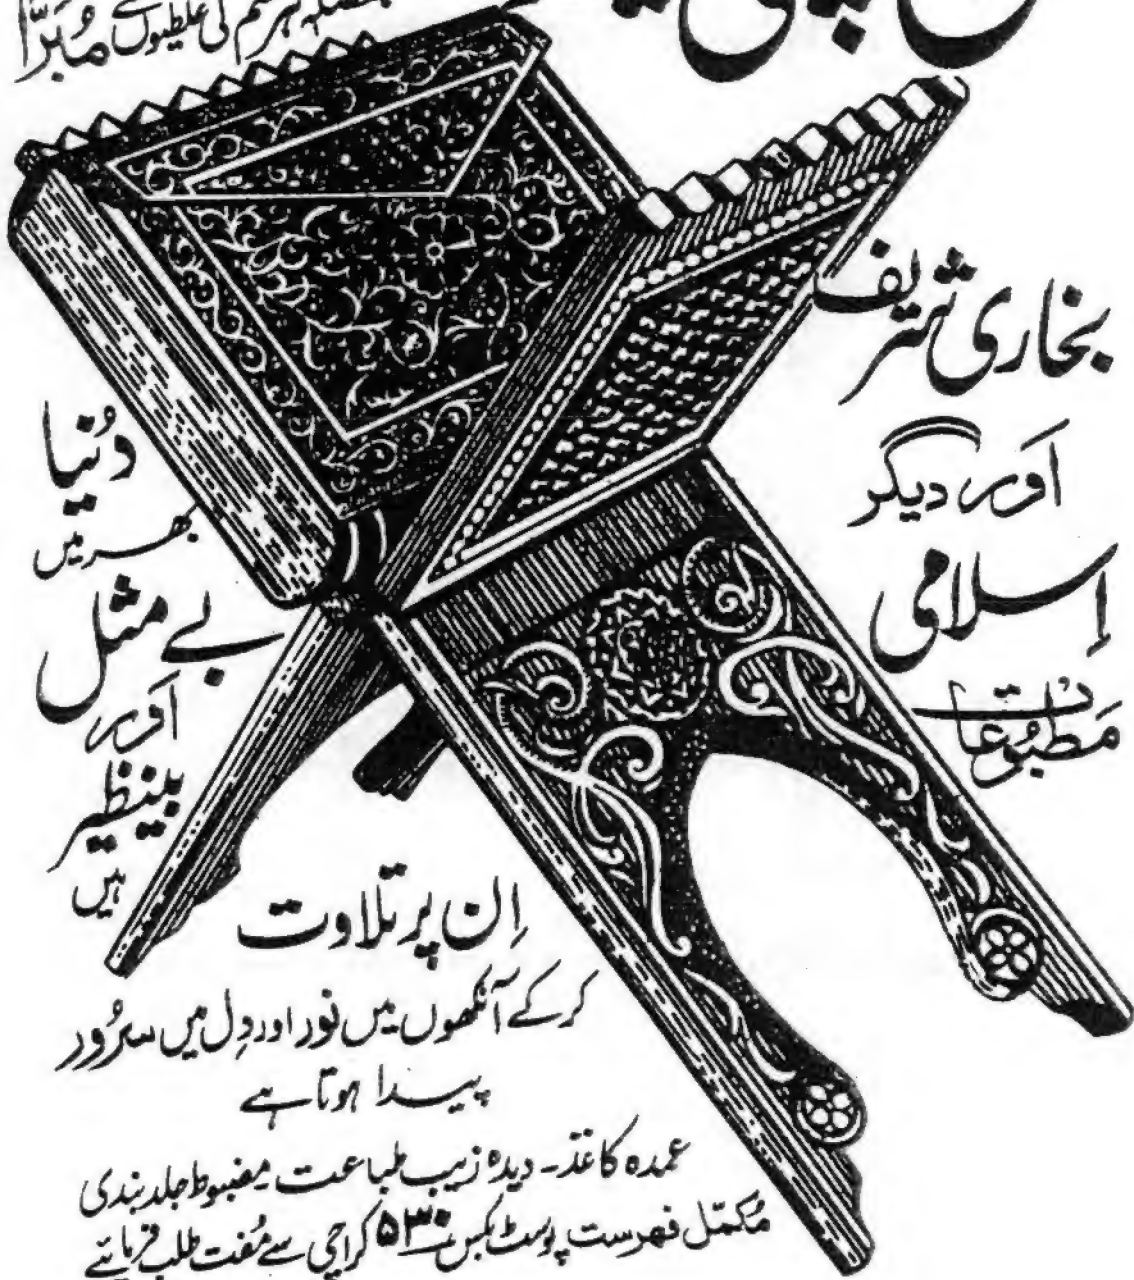 ہر قسم کی غلطیوں سے مُبرّا
بخاری شریف
اَور دیگر
اِسلامی
مَطبُوعات
دُنیا
بھر میں
بے مثل
اَور
بینظیر
ہیں
اِن پر تلاوت
کرکے آنکھوں میں نور اور دِل میں سرُور
پیدا ہوتا ہے
عمدہ کاغذ۔ دیدہ زیب طباعت۔ مضبوط جلد بندی
مُکمّل فہرست پوسٹ بکس ۵۳۰ کراچی سے مُفت طلب فرمائیے